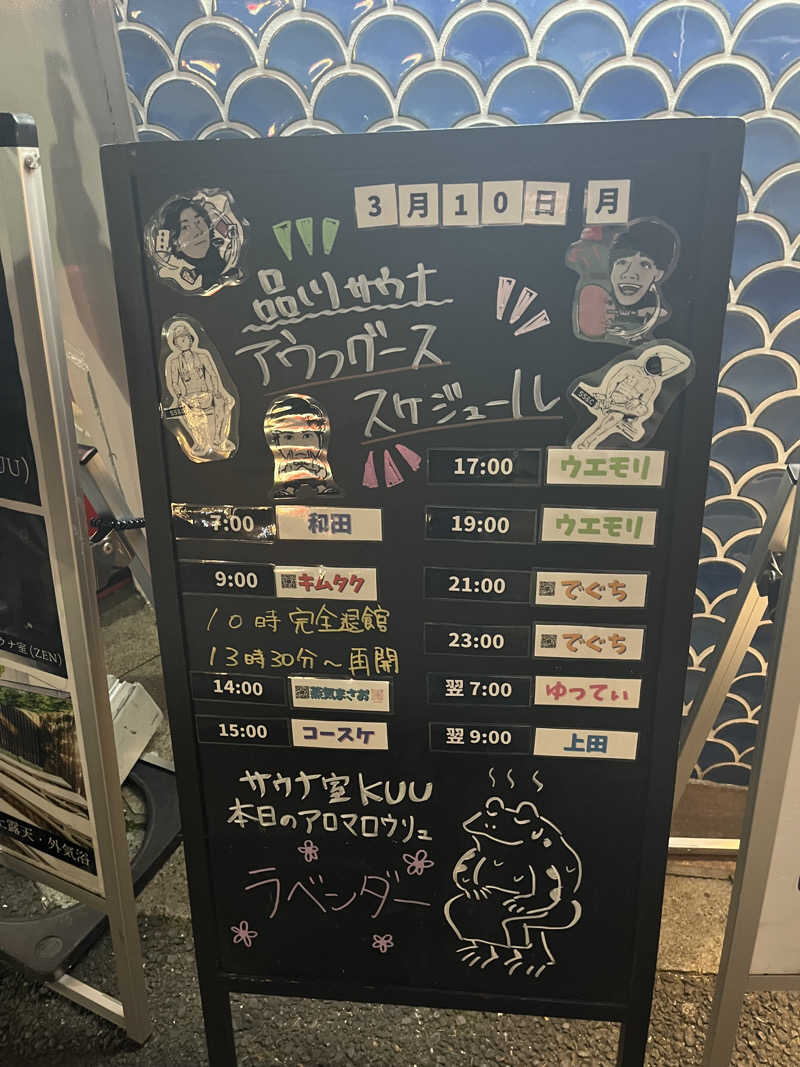 3月10日 月
品川サウナ
アウフグース
スケジュール
7:00 和田
9:00 キムタク
10時 完全退館
13時30分〜再開
14:00 蒸気まさお
15:00 コースケ
17:00 ウエモリ
19:00 ウエモリ
21:00 でぐち
23:00 でぐち
翌7:00 ゆってぃ
翌9:00 上田
サウナ室 KUU
本日のアロマロウリュ
ラベンダー
UU)
ウナ室(ZEN)
露天・外気浴